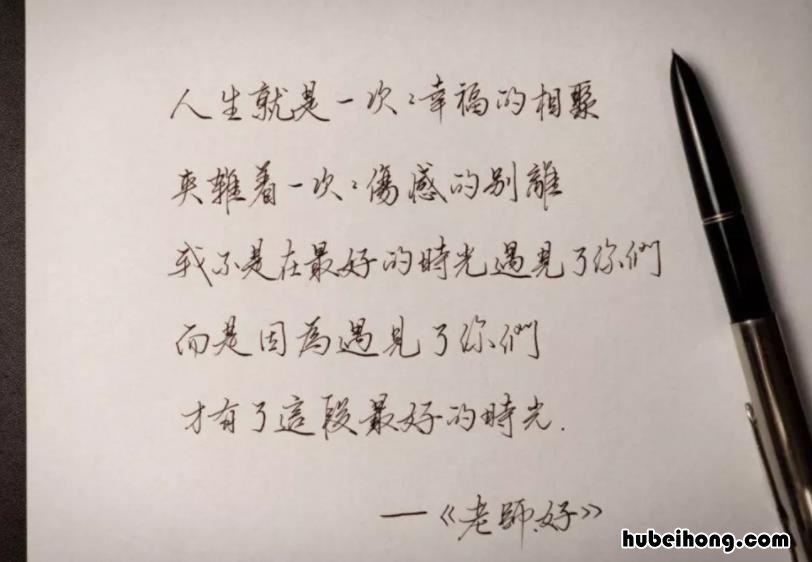 人生就是一次次幸福的相聚
夾雜着一次次傷感的别離
我不是在最好的時光遇見了你們
而是因為遇見了你們
才有了這段最好的時光.
—《老師·好》
hubeihong.com